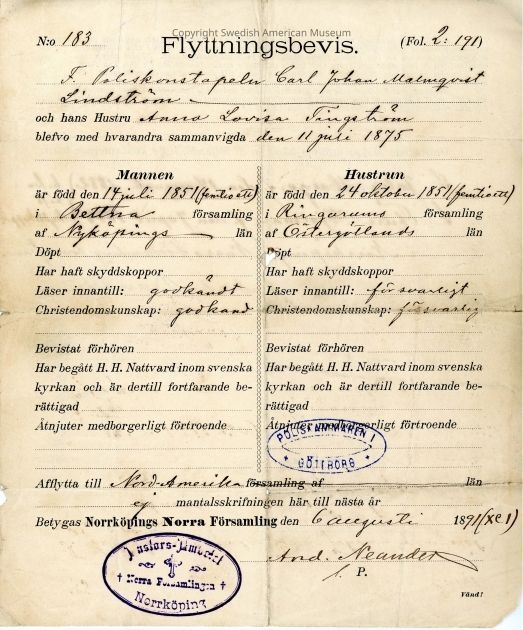 Copyright Swedish American Museum
N:o 183
Flyttningsbevis.
(Fol. 2: 191)
F. Poliskonstapeln Carl Johan Malmqvist
Lindström
och hans Hustru Anna Lovisa Tingström
blefvo med hvarandra sammanvigda den 11 juli 1875
Mannen
är född den 14 juli 1851 (femtioett)
i Bettna församling
af Nyköpings län
Döpt
Har haft skyddskoppor
Läser innantill: godkändt
Christendomskunskap: godkänd
Bevistat förhören
Har begått H. H. Nattvard inom svenska
kyrkan och är dertill fortfarande be-
rättigad
Åtnjuter medborgerligt förtroende
Hustrun
är född den 24 oktober 1851 (femtioett)
i Ringarums församling
af Östergötlands län
Döpt
Har haft skyddskoppor
Läser innantill: försvarligt
Christendomskunskap: försvarlig
Bevistat förhören
Har begått H. H. Nattvard inom svenska
kyrkan och är dertill fortfarande be-
rättigad
Åtnjuter medborgerligt förtroende
POLISKAMMAREN I
GÖTEBORG
Afflytta till Nord-Amerika församling af län
ej mantalsskrifningen här till nästa år
Betygas Norrköpings Norra Församling den 6 augusti 1891 (XCI)
And. Neander
P.
Pastors-Embetet
Norra Församlingen
Norrköping
Vänd!